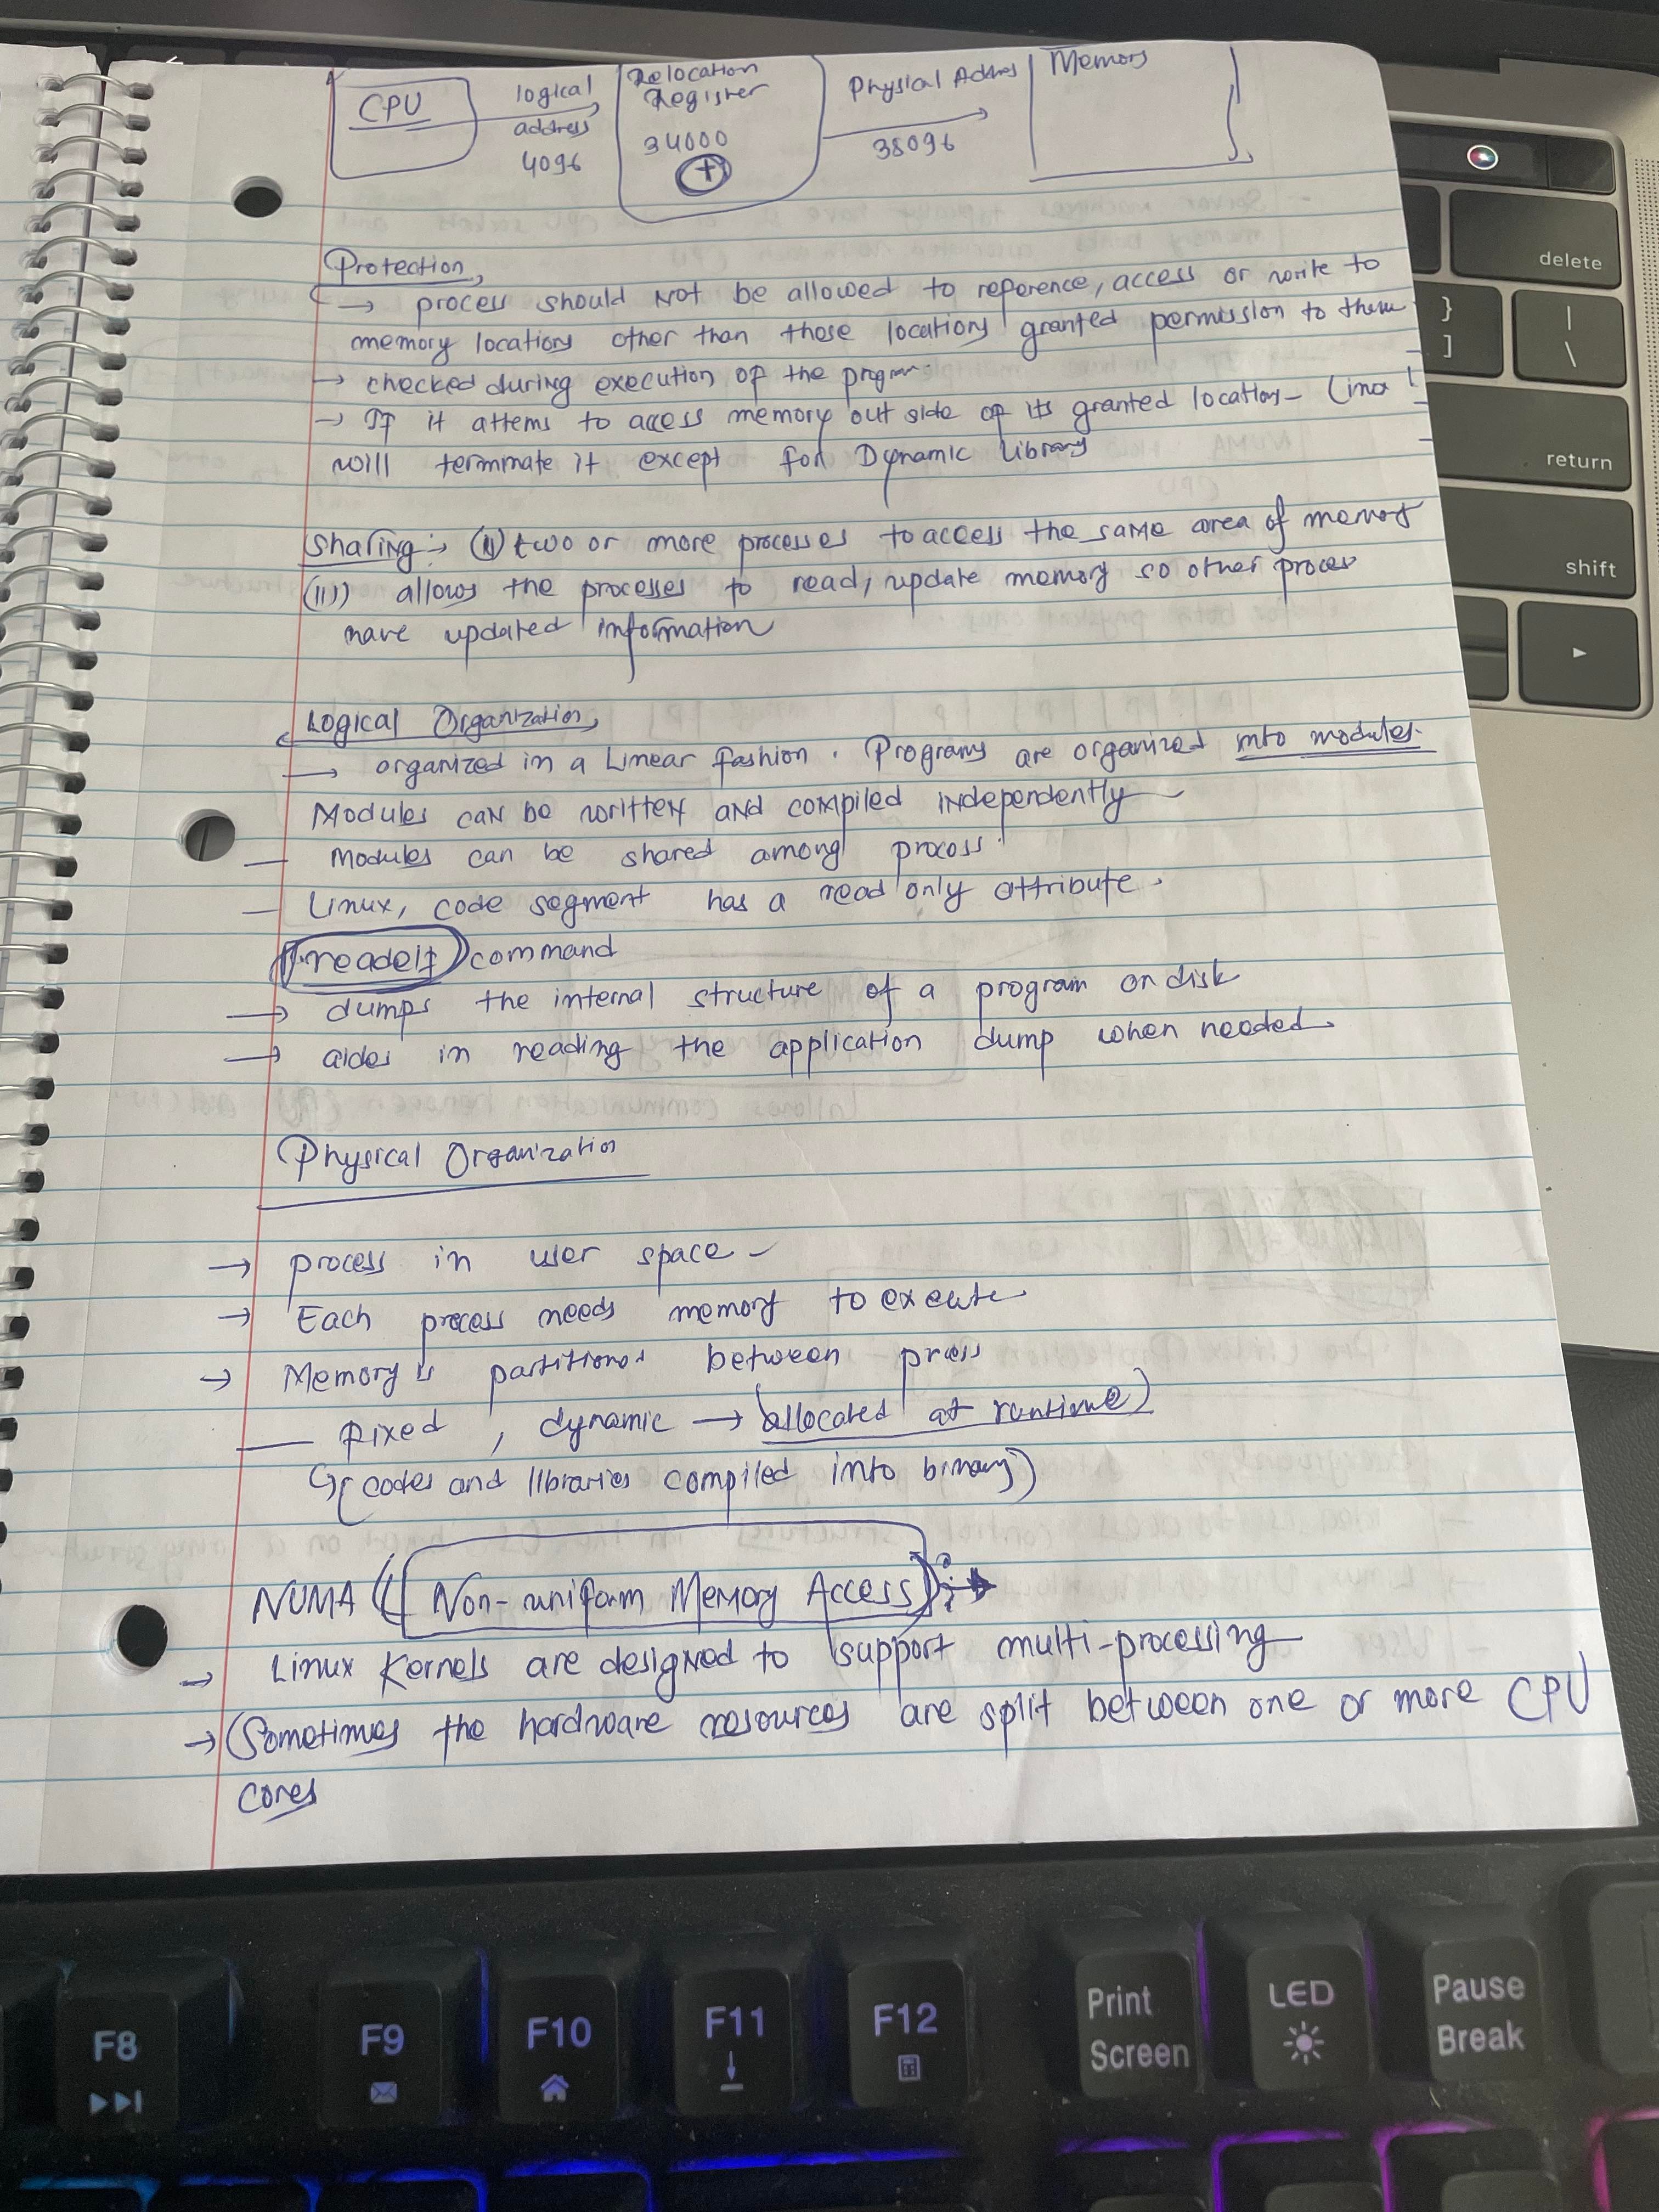 CPU
logical
address
4096
Relocation
Register
34000
+
Physical Addres
38096
Memory
Protection,
→ process should Not be allowed to reference, access or write to
memory locations other than those locations granted permission to them
→ checked during execution of the progrm.
→ If it attems to access memory out side of its granted location - Linux
will terminate it except for Dynamic Library
Sharing :→ (i) two or more processes to access the same area of memory
(ii) allows the processes to read, update memory so other proces
have updated information
Logical Organization,
→ organized in a Linear fashion. Programs are organized into modules.
Modules can be written and compiled independently
— Modules can be shared among process.
— Linux, code segment has a read only attribute.
readelf command
→ dumps the internal structure of a program on disk
→ aides in reading the application dump when needed.
Physical Organization
→ process in user space -
→ Each process needs memory to execute
→ Memory is partitioned between process
— fixed, dynamic → (allocated at runtime)
↳ (codes and libraries compiled into binary)
NUMA (Non-uniform Memory Access) : →
→ Linux Kernels are designed to support multi-processing
→ (Sometimes the hardware resources are split between one or more CPU
cores
delete
}
]
|
\
return
shift
F8
F9
F10
F11
F12
Print
Screen
LED
Pause
Break